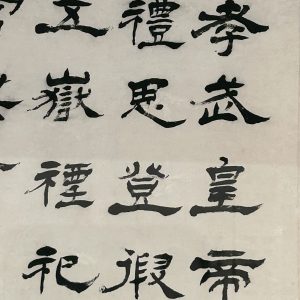 孝武皇帝
禮思登徦
五嶽禋祀